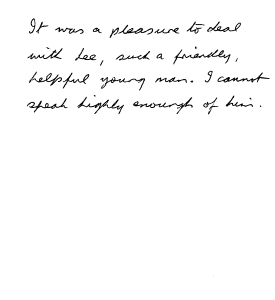 It was a pleasure to deal
with Lee, such a friendly,
helpful young man. I cannot
speak highly enough of him.